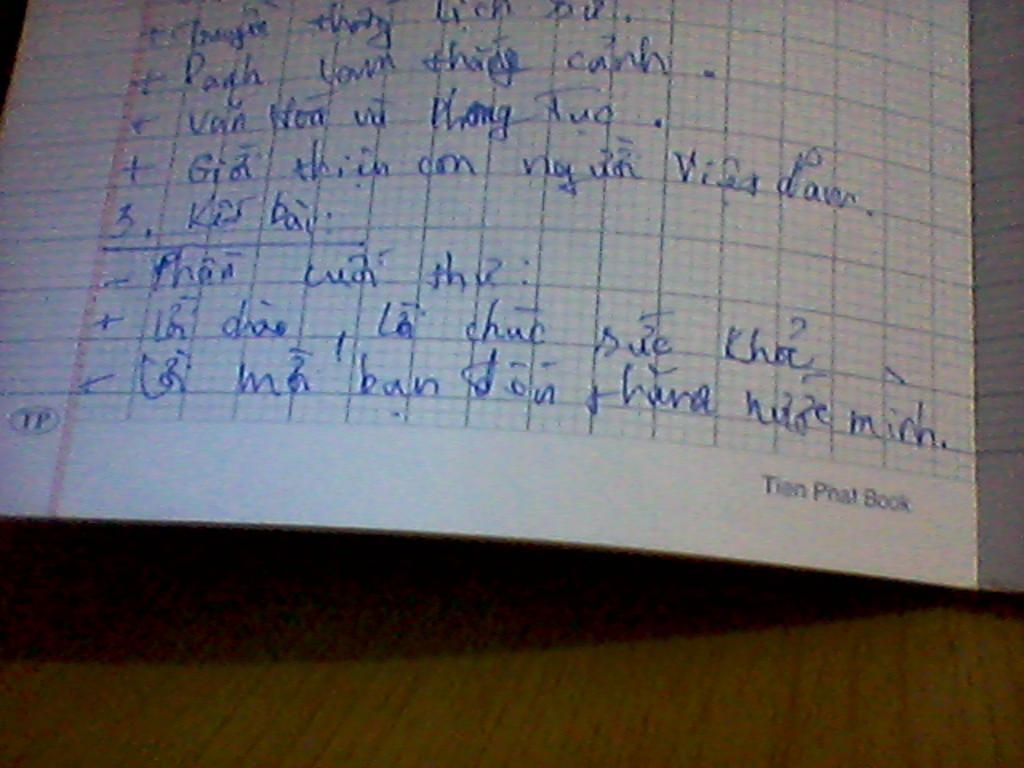 + Truyền thống lịch sử.
+ Danh lam thắng cảnh.
+ Văn Hoá và Phong tục.
+ Giới thiệu con người Việt Nam.
3. Kết bài:
- Phần cuối thư:
+ Lời chào, lời chúc sức khoẻ
- Lời mời bạn đến thăm nước mình.
TP
Tien Phat Book